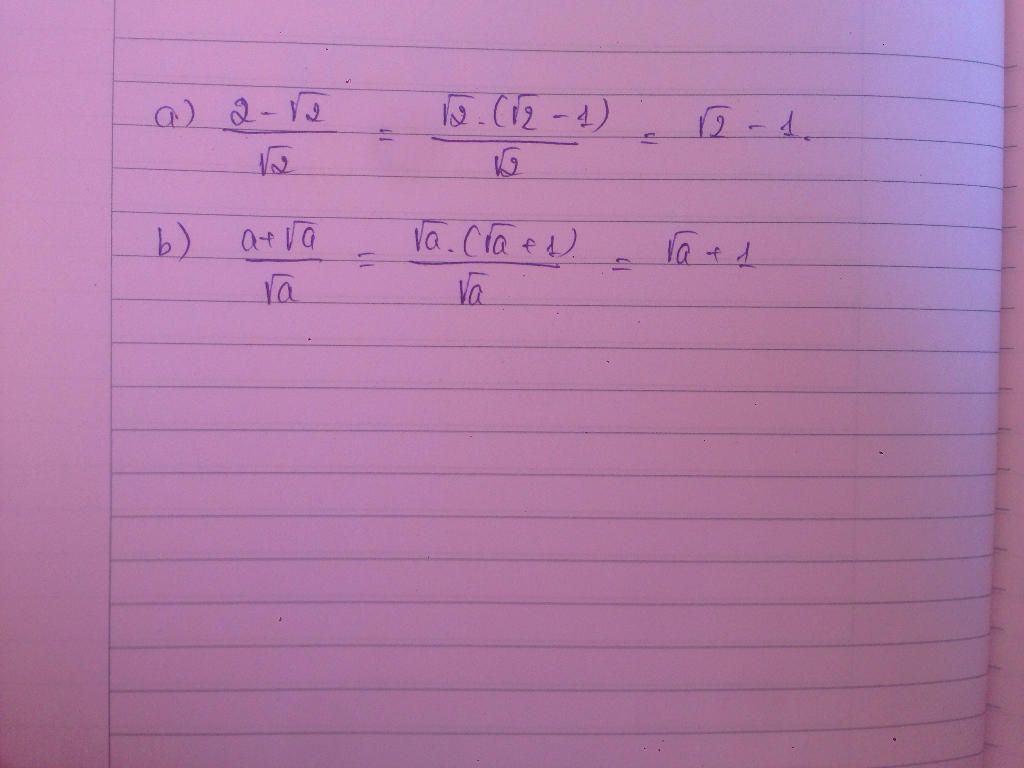 a) \frac{2-\sqrt{2}}{\sqrt{2}} = \frac{\sqrt{2}.(\sqrt{2}-1)}{\sqrt{2}} = \sqrt{2}-1.
b) \frac{a+\sqrt{a}}{\sqrt{a}} = \frac{\sqrt{a}.(\sqrt{a}+1)}{\sqrt{a}} = \sqrt{a}+1